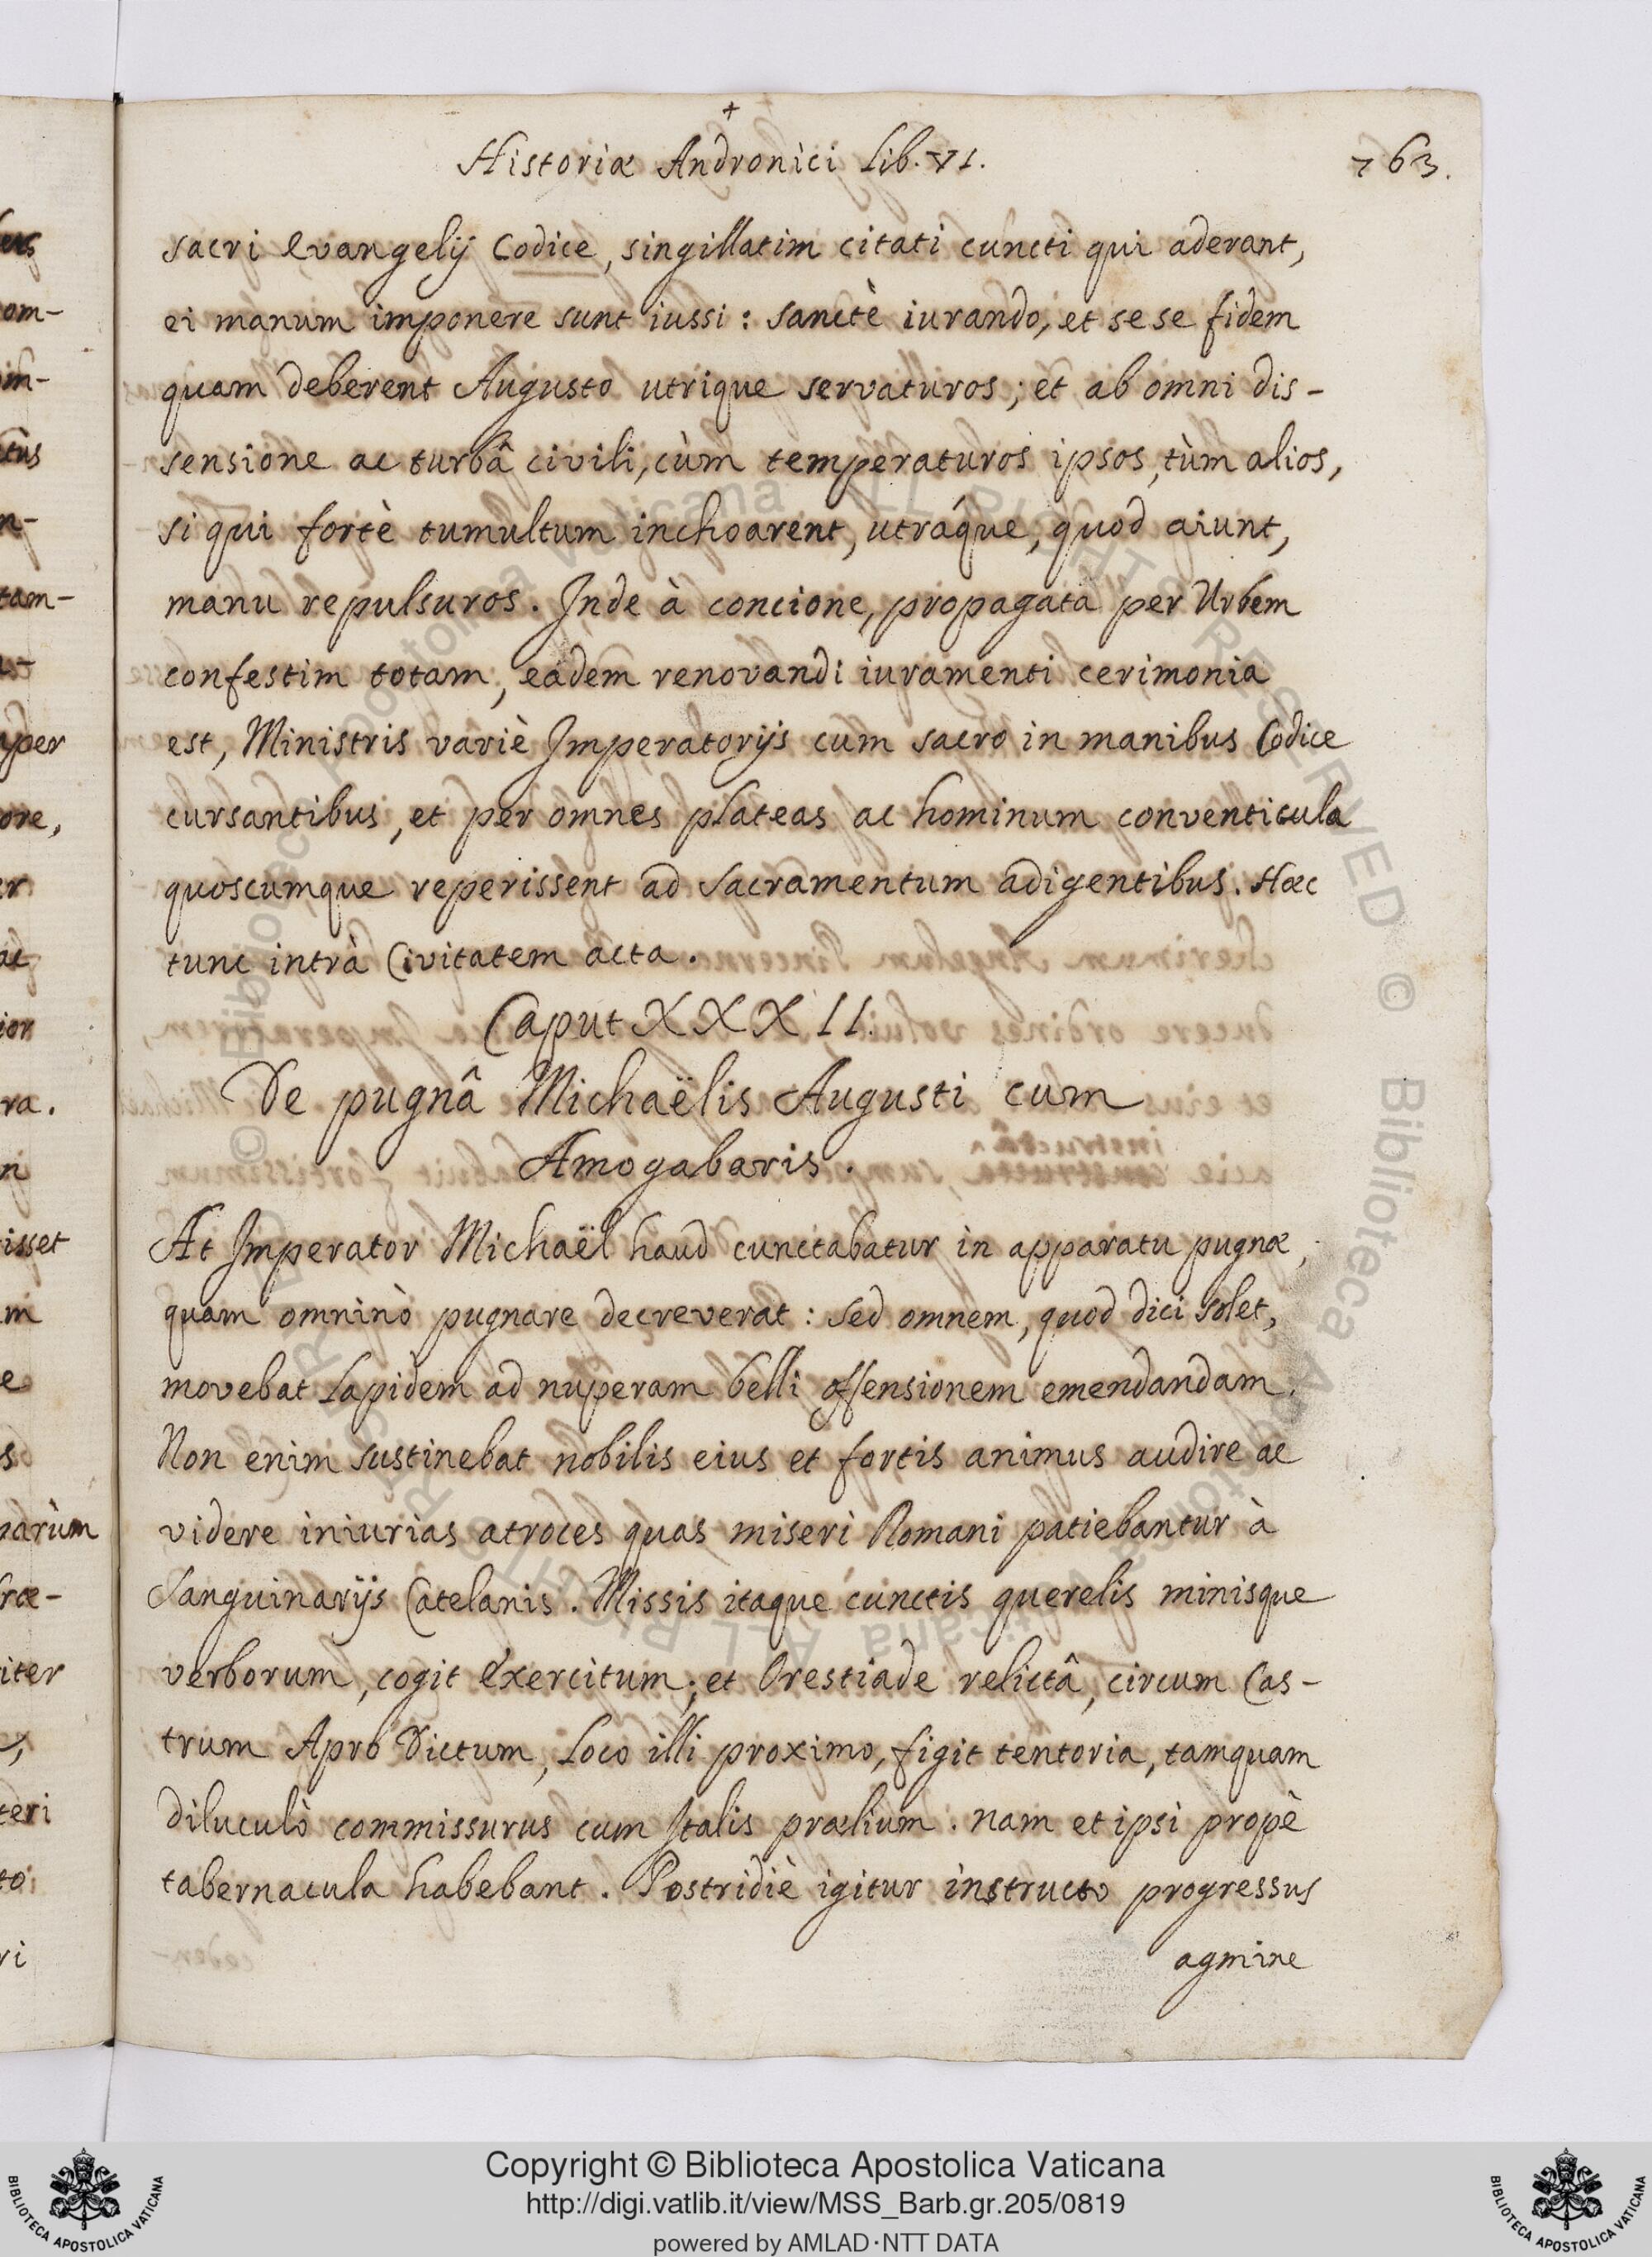 +
Historiæ Andronici Lib. VI.
763.
sacri Evangelij Codice, singillatim citati cuncti qui aderant,
ei manum imponere sunt iussi: sanctè iurando, et se se fidem
quam deberent Augusto utrique servaturos; et ab omni dis-
sensione ac turbâ civili, cùm temperaturos ipsos, tùm alios,
si qui fortè tumultum inchoarent, utrâque, quod aiunt,
manu repulsuros. Inde à concione, propagata per Urbem
confestim totam, eadem renovandi iuramenti cerimonia
est, Ministris variè Imperatorijs cum sacro in manibus Codice
cursantibus, et per omnes plateas ac hominum conventicula
quoscumque reperissent ad Sacramentum adigentibus. Hæc
tunc intrà Civitatem acta.
Caput XXXII.
De pugnâ Michaëlis Augusti cum
Amogabaris.
At Imperator Michaël haud cunctabatur in apparatu pugnæ,
quam omninò pugnare decreverat: sed omnem, quod dici solet,
movebat Lapidem ad nuperam belli offensionem emendandam.
Non enim sustinebat nobilis eius et fortis animus audire ac
videre iniurias atroces quas miseri Romani patiebantur à
Sanguinarijs Catelanis. Missis itaque cunctis querelis minisque
verborum, cogit Exercitum; et Orestiade relictâ, circum Cas-
trum Apro Dictum, Loco illi proximo, figit tentoria, tamquam
diluculò commissurus cum Italis prælium. nam et ipsi propè
tabernacula habebant. Postridiè igitur instructo progressus
agmine
Copyright © Biblioteca Apostolica Vaticana
http://digi.vatlib.it/view/MSS_Barb.gr.205/0819
powered by AMLAD·NTT DATA
BIBLIOTECA APOSTOLICA VATICANA
BIBLIOTECA APOSTOLICA VATICANA